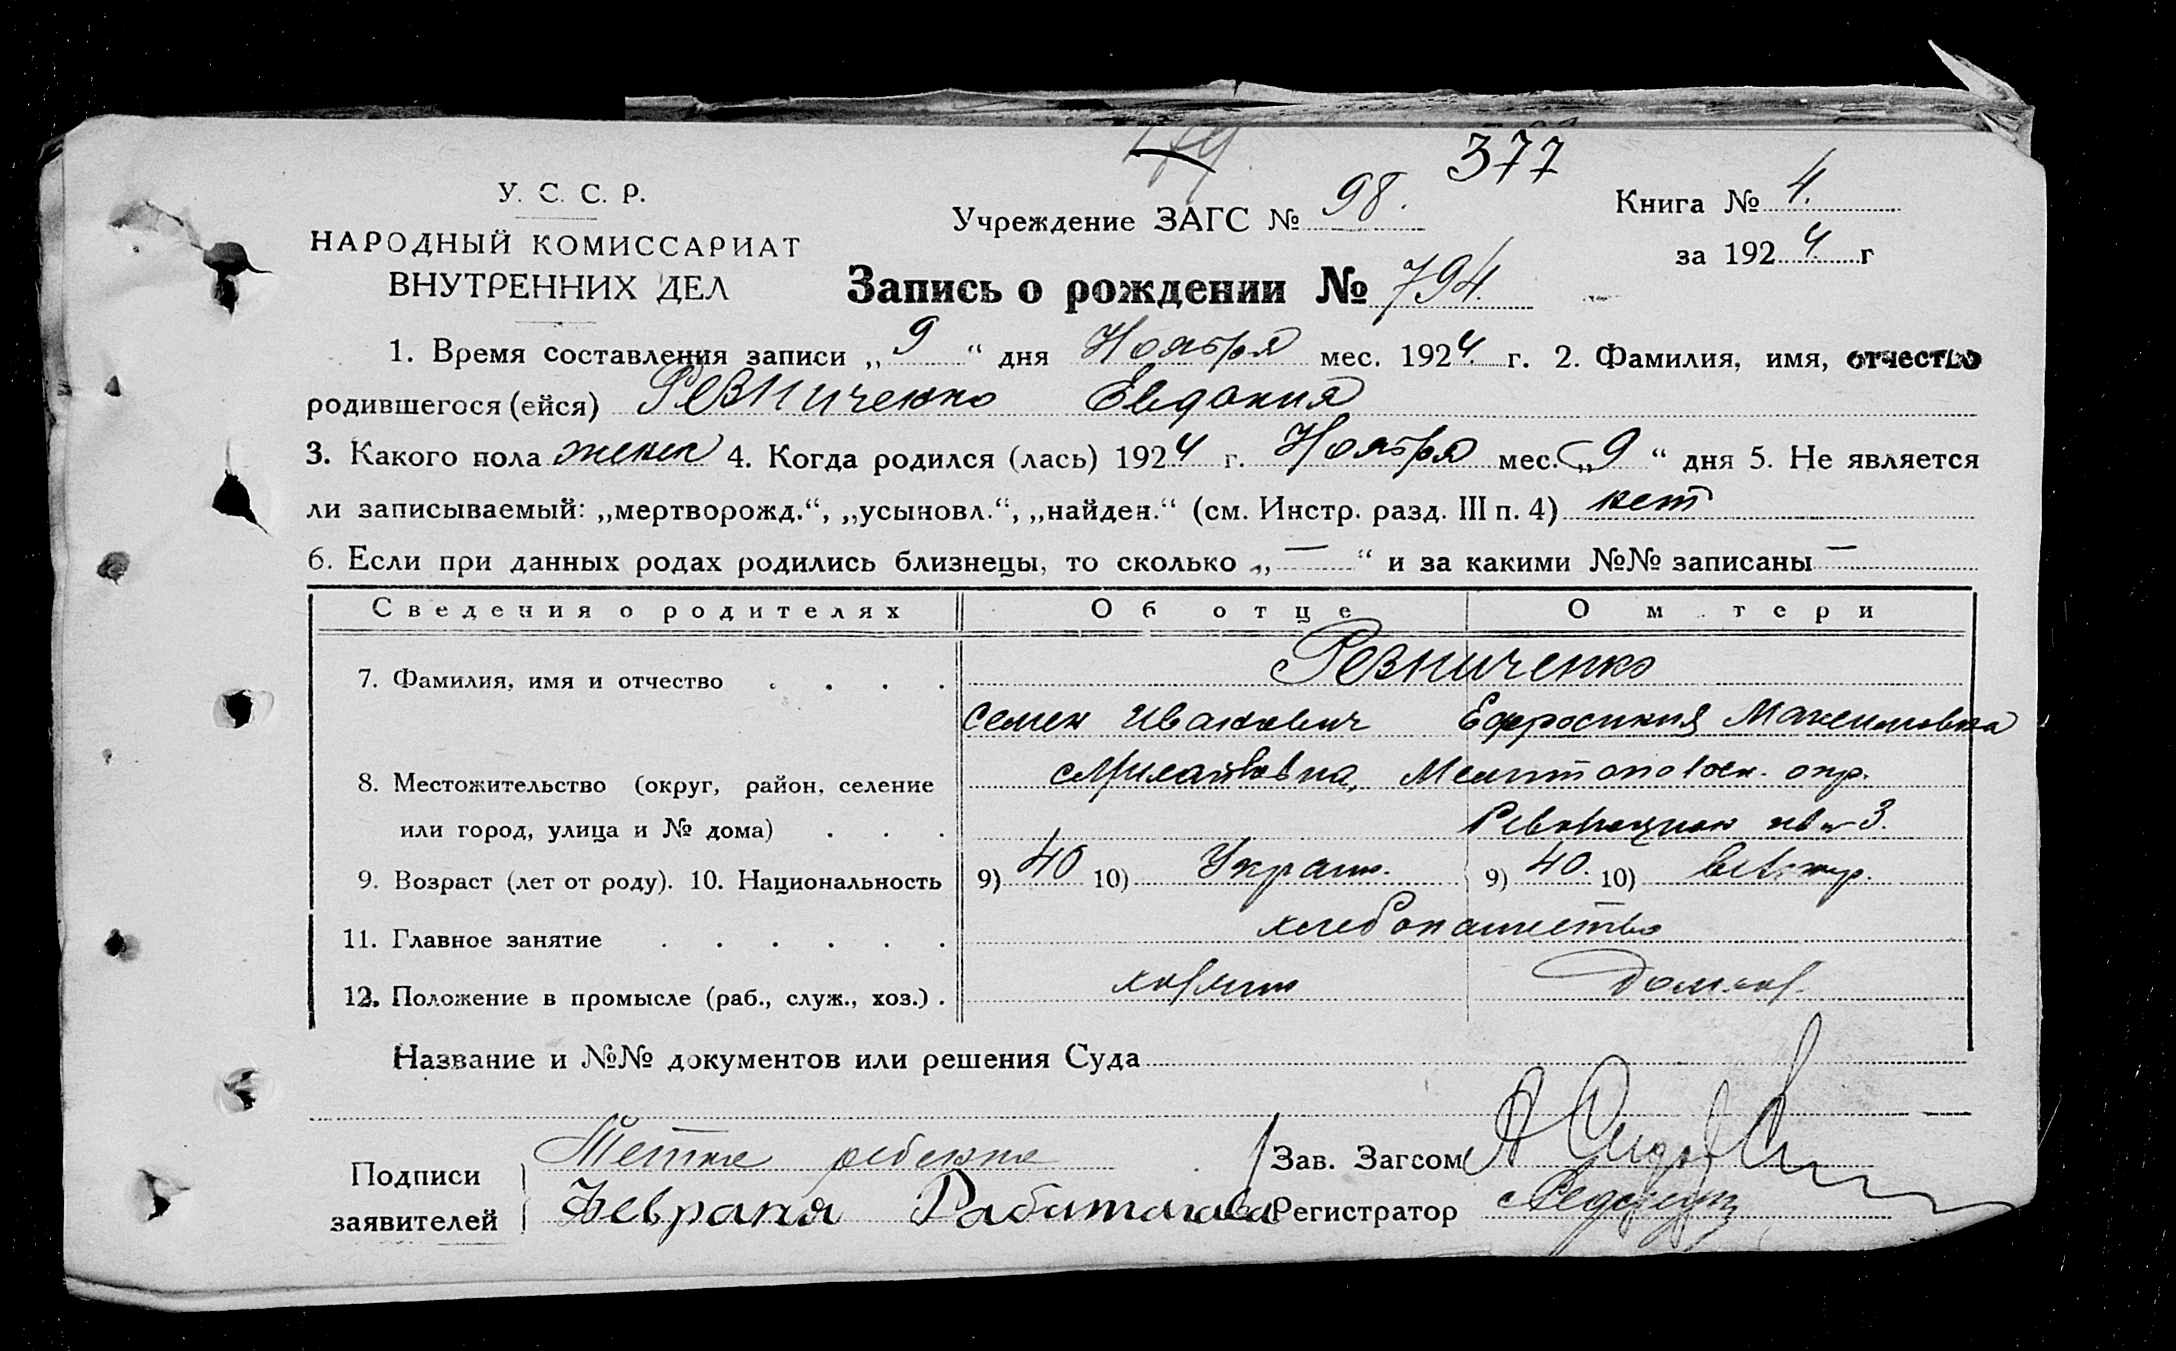 377
У. С. С. Р.
НАРОДНЫЙ КОМИССАРИАТ
ВНУТРЕННИХ ДЕЛ
Учреждение ЗАГС № 98.
Книга № 4.
за 1924 г
Запись о рождении № 794.
1. Время составления записи „ 9 “ дня Ноября мес. 1924 г. 2. Фамилия, имя, отчество
родившегося (ейся) Резниченко Евдокия
3. Какого пола женск 4. Когда родился (лась) 1924 г. Ноября мес. „ 9 “ дня 5. Не является
ли записываемый: „мертворожд.“, „усыновл.“, „найден.“ (см. Инстр. разд. III п. 4) нет
6. Если при данных родах родились близнецы, то сколько „ — “ и за какими №№ записаны —
Сведения о родителях Об отце О м тери
7. Фамилия, имя и отчество . . . . Резниченко
Семен Иванович Ефросиния Максимовна
8. Местожительство (округ, район, селение с Михайловка, Мелитопольск. окр.
или город, улица и № дома) . . .
9. Возраст (лет от роду). 10. Национальность 9) 40 10) Украин. 9) 40. 10)
11. Главное занятие . . . . . . хлебопашество
12. Положение в промысле (раб., служ., хоз.) . хозяин Домхоз.
Название и №№ документов или решения Суда
Подписи заявителей
Тетка ребенка
Зав. Загсом
Регистратор